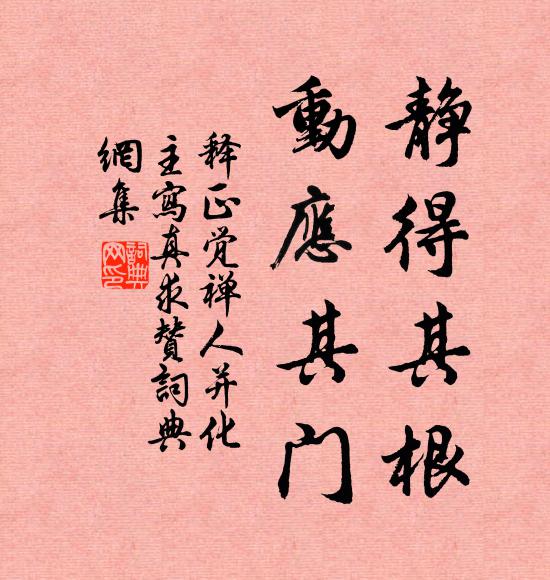 静得其根
動應其门
释正觉禅人并化
主寫真求賛詞典
網集
詞典网印